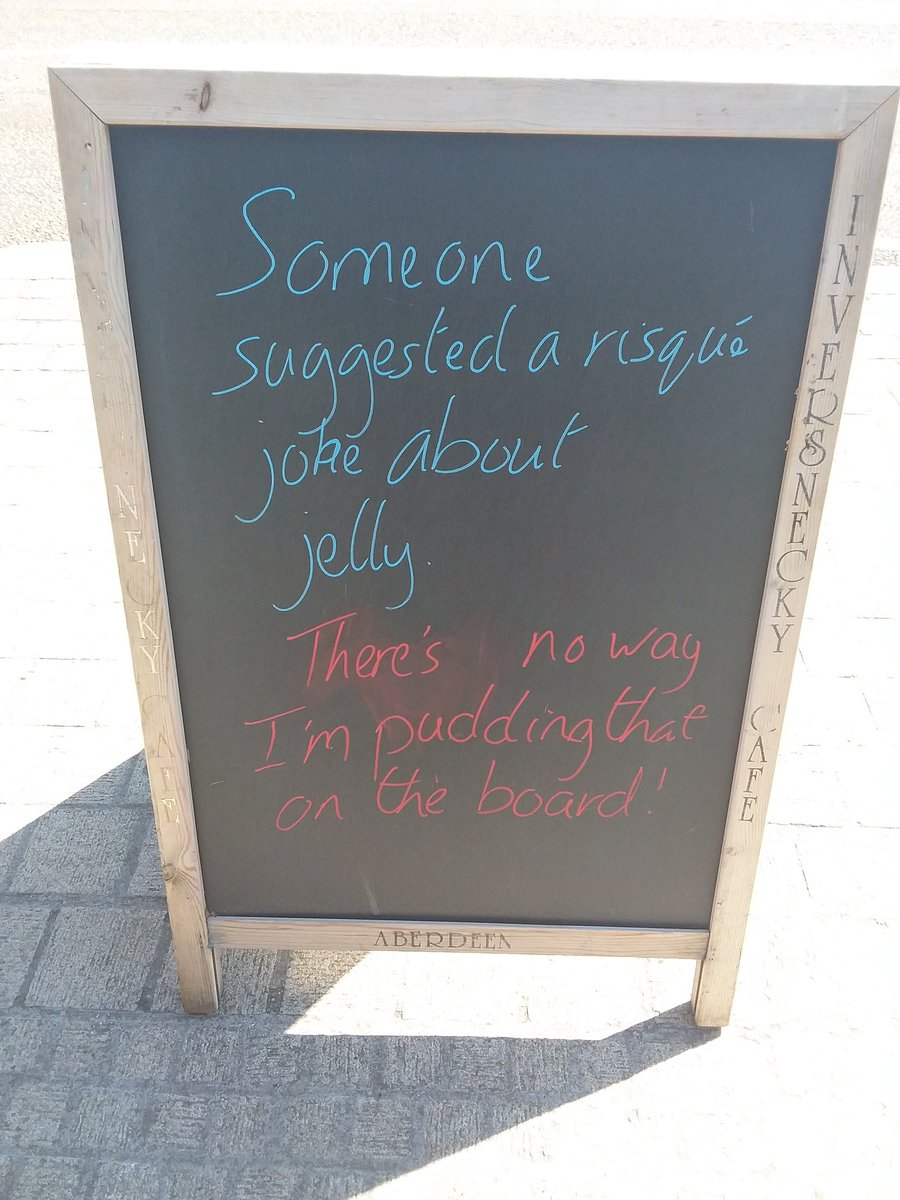 Someone
suggested a risqué
joke about
jelly.
There's no way
I'm pudding that
on the board!
INVERSNECKY CAFE
NECKY CAFE
ABERDEEN